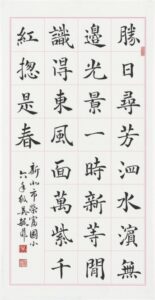 勝日尋芳泗水濱無
邊光景一時新等閒
識得東風面萬紫千
紅揔是春
新北市榮富國小
六年級吳